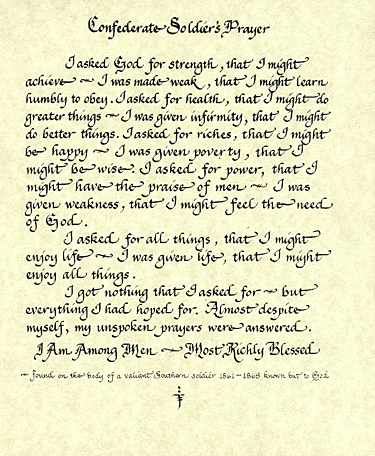 Confederate Soldier's Prayer
I asked God for strength, that I might
achieve ~ I was made weak, that I might learn
humbly to obey. I asked for health, that I might do
greater things ~ I was given infirmity, that I might
do better things. I asked for riches, that I might
be happy ~ I was given poverty, that I
might be wise. I asked for power, that I
might have the praise of men ~ I was
given weakness, that I might feel the need
of God.
I asked for all things, that I might
enjoy life ~ I was given life, that I might
enjoy all things.
I got nothing that I asked for ~ but
everything I had hoped for. Almost despite
myself, my unspoken prayers were answered.
I Am Among Men ~ Most Richly Blessed
~ found on the body of a valiant Southern soldier 1861~1865 known but to God